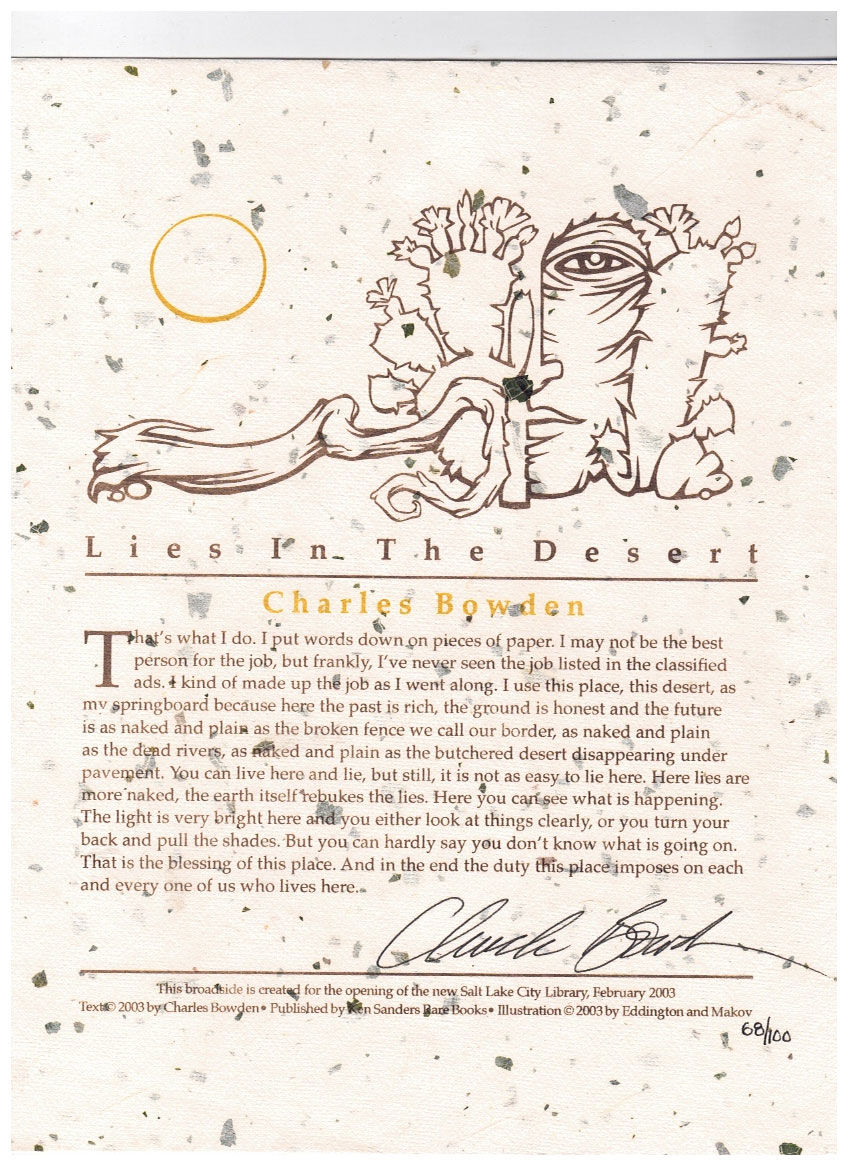 Lies In The Desert
Charles Bowden
That's what I do. I put words down on pieces of paper. I may not be the best
person for the job, but frankly, I've never seen the job listed in the classified
ads. I kind of made up the job as I went along. I use this place, this desert, as
my springboard because here the past is rich, the ground is honest and the future
is as naked and plain as the broken fence we call our border, as naked and plain
as the dead rivers, as naked and plain as the butchered desert disappearing under
pavement. You can live here and lie, but still, it is not as easy to lie here. Here lies are
more naked, the earth itself rebukes the lies. Here you can see what is happening.
The light is very bright here and you either look at things clearly, or you turn your
back and pull the shades. But you can hardly say you don't know what is going on.
That is the blessing of this place. And in the end the duty this place imposes on each
and every one of us who lives here.
Chuck Bowden
This broadside is created for the opening of the new Salt Lake City Library, February 2003
Text © 2003 by Charles Bowden • Published by Ken Sanders Rare Books • Illustration © 2003 by Eddington and Makov
68/100